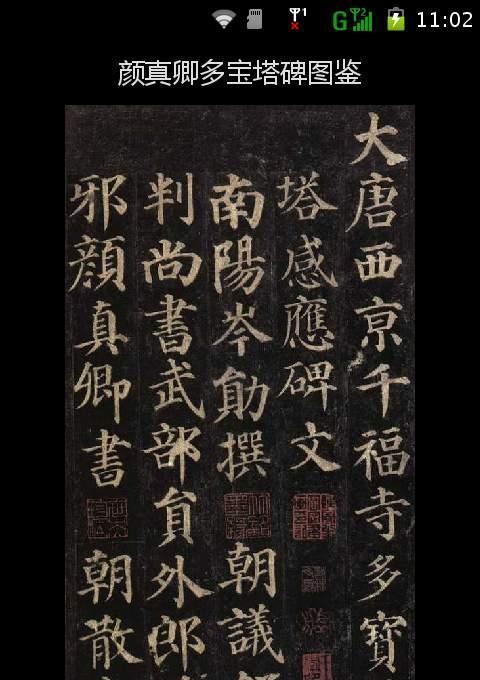 11:02
颜真卿多宝塔碑图鉴
大唐西京千福寺多寳
塔感應碑文
南陽岑勛撰 朝議
判尚書武部員外郎
邪顔真卿書 朝散